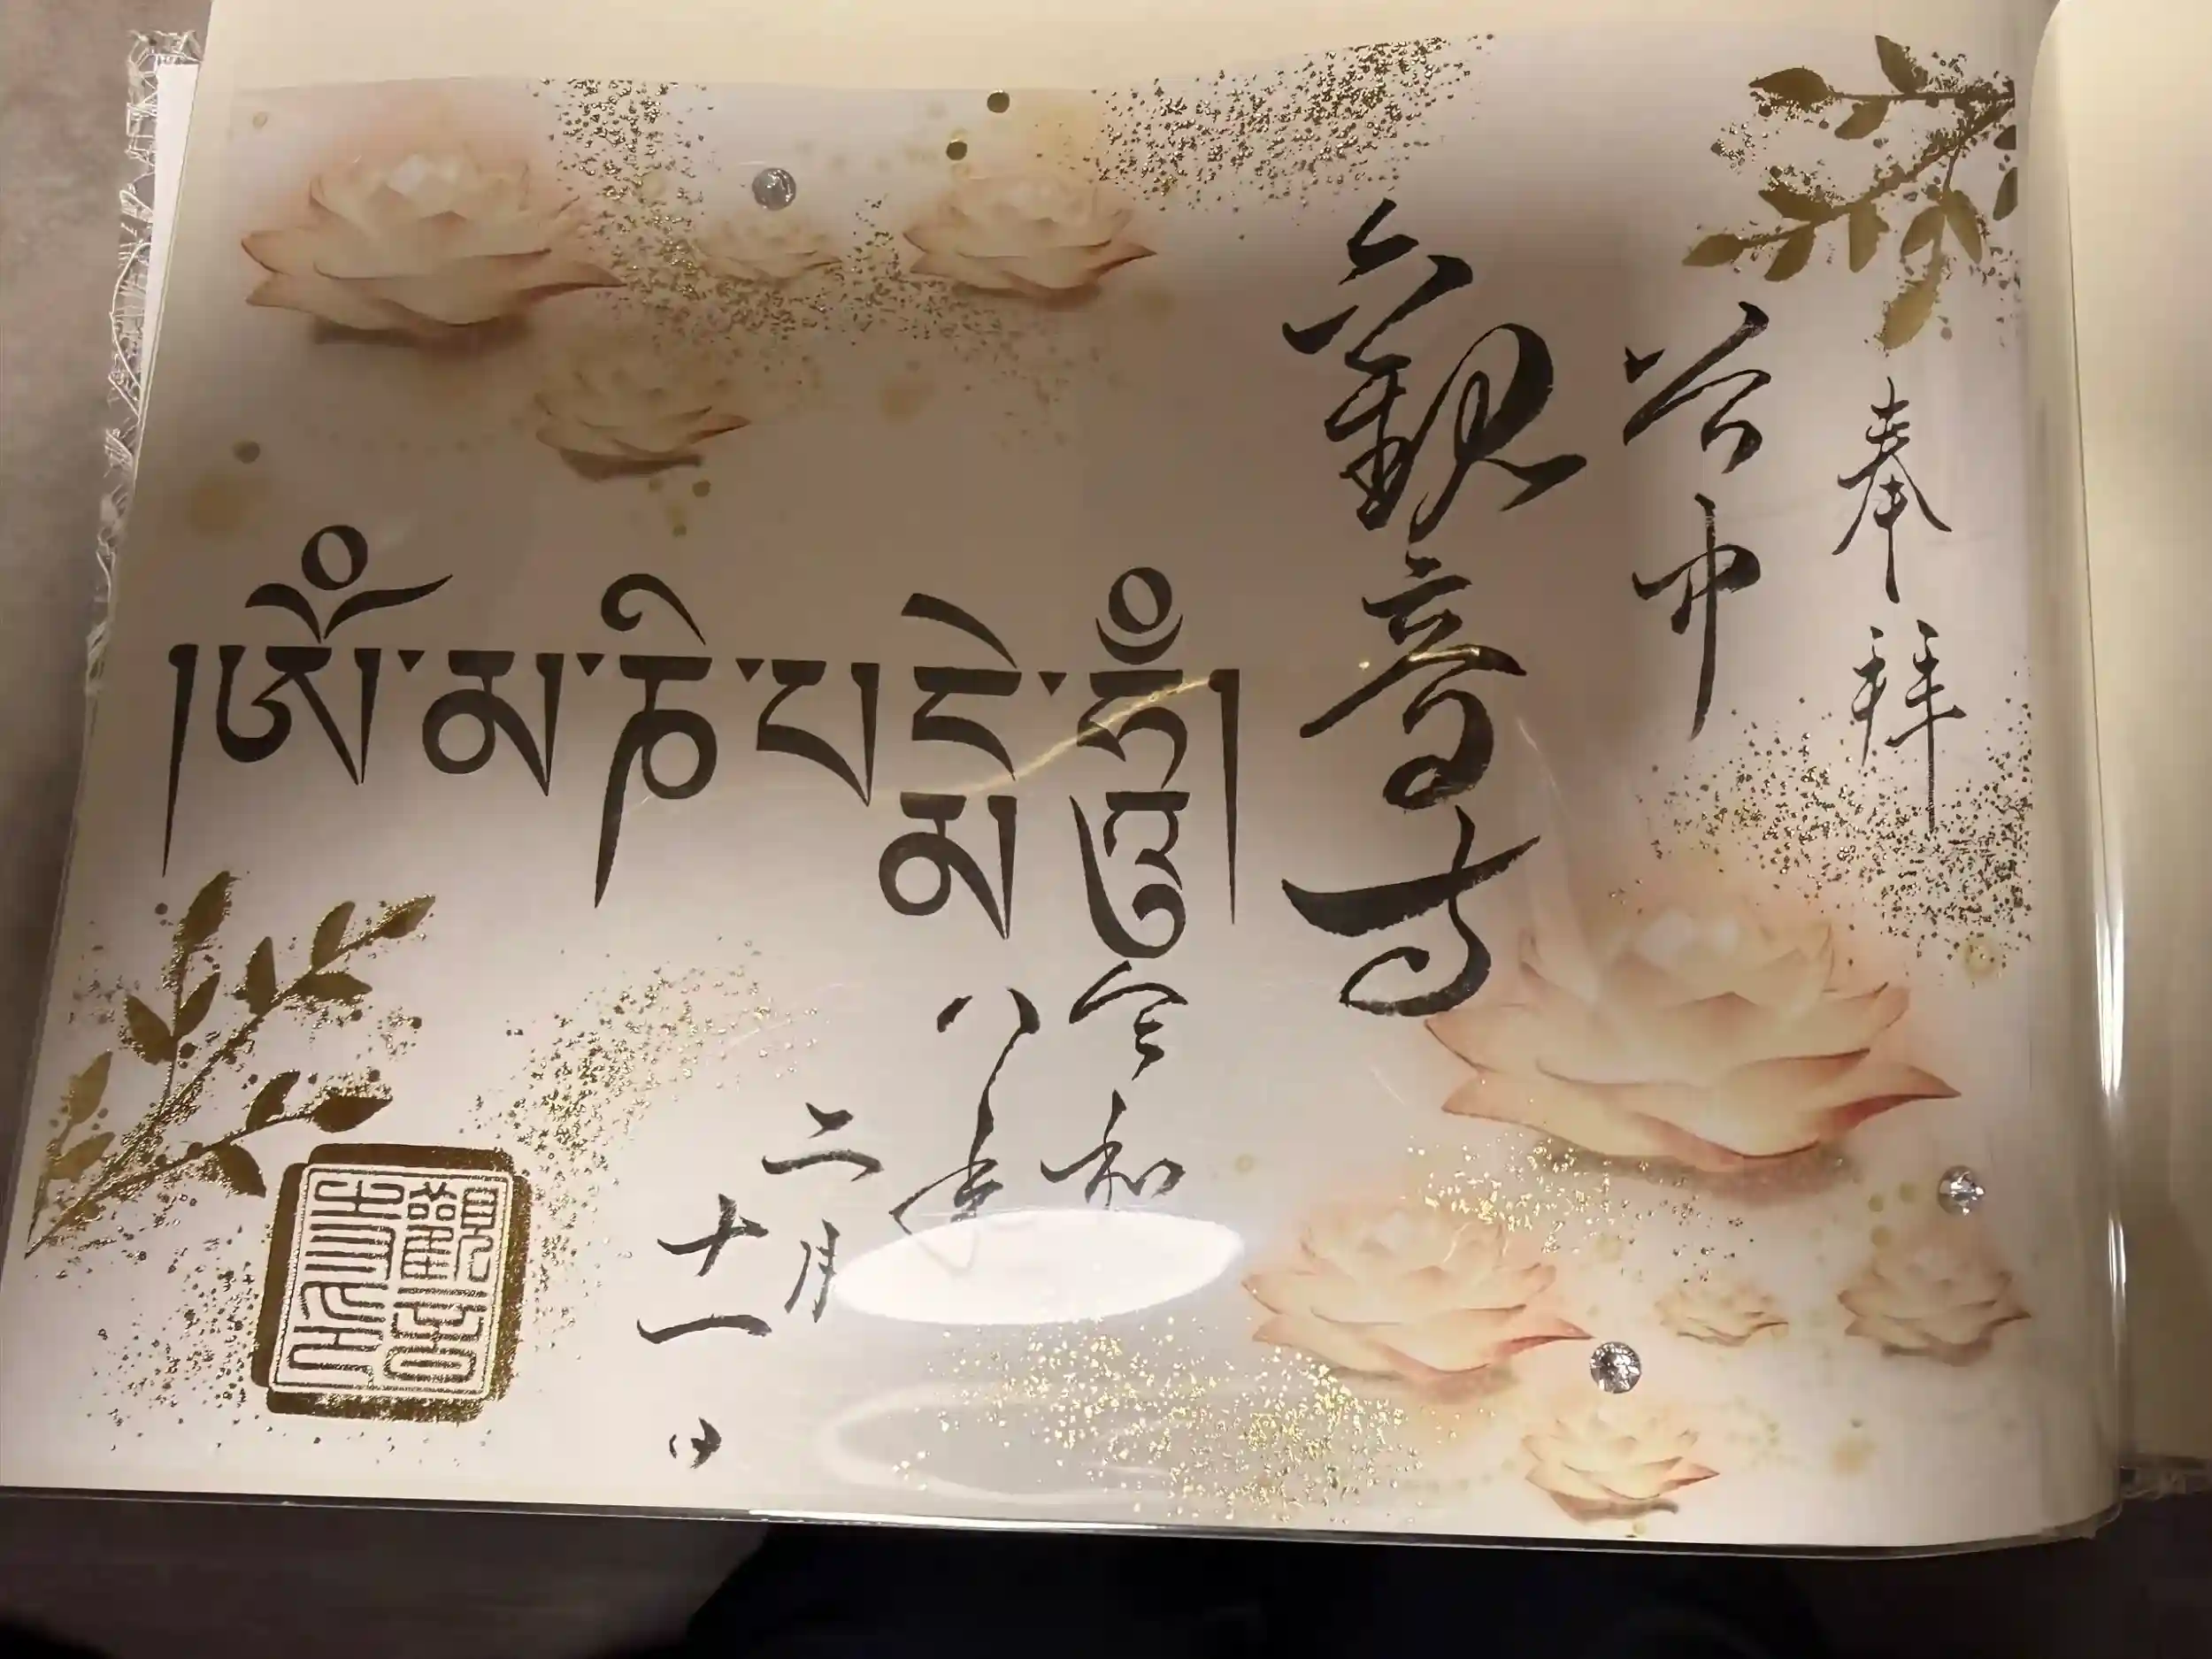 奉拝
谷中
観音寺
།ཨོཾ་མ་ཎི་པདྨེ་ཧཱུྃ།
令和
八年
二月
十一日
觀音
寺印